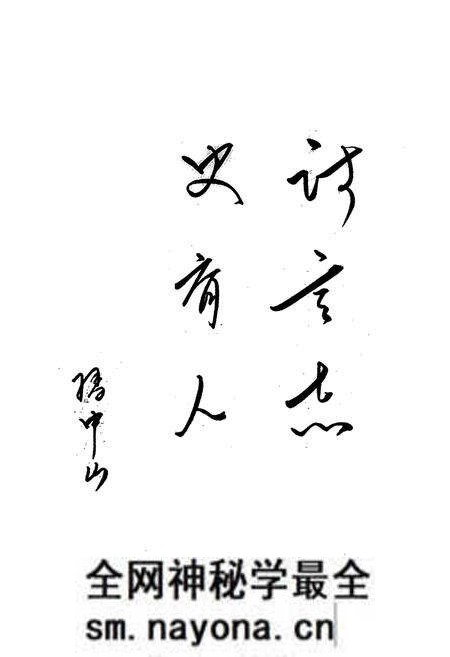 诗言志
史育人
中山
全网神秘学最全
sm.nayona.cn